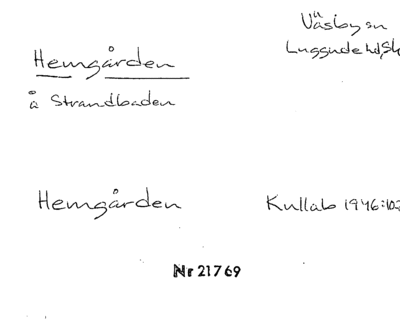 Väsby sn
Luggude hd, Sk
Hemgården
å Strandbaden
Hemgården
Kullab 1946:102
Nr 21769